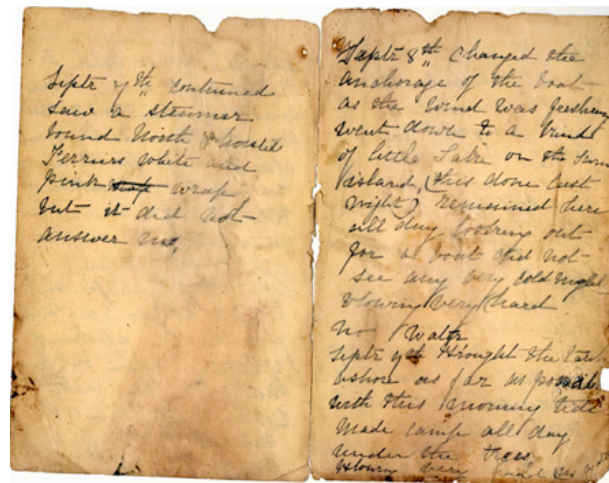 Septr 7th continued
saw a steamer
bound North & hoisted
Ferriers white and
pink wrap
but it did not
answer me,
Septr 8th changed the
anchorage of the boat
as the wind was freshening
went down to a kind
of little Lake on the same
island, (this done last
night) remained here
all day looking out
for a boat did not
see any very cold night
blowing very hard
no water
Septr 9th Brought the
ashore as far as possible
with this morning tide
made camp all day
under the trees
Blowing very hard